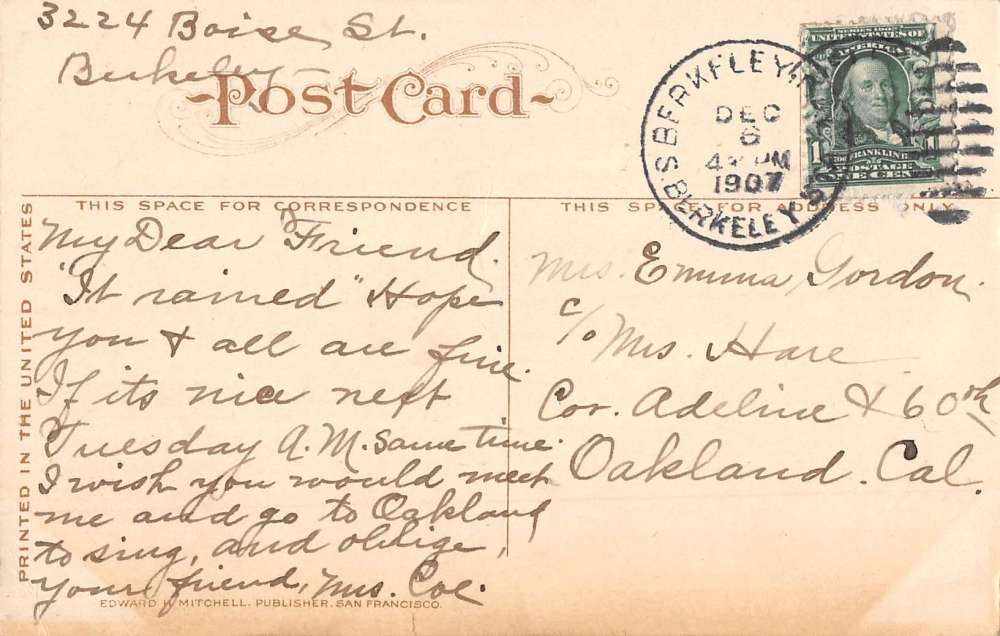 3224 Boise St.
Berkeley
Post Card
BERKELEY
DEC
6
4 PM
1907
BERKELEY
SERIES 1902
UNITED STATES OF
AMERICA
FRANKLIN
POSTAGE
1 ONE CENT 1
THIS SPACE FOR CORRESPONDENCE
THIS SPACE FOR ADDRESS ONLY
PRINTED IN THE UNITED STATES
My Dear Friend.
"It rained" Hope
you & all are fine.
If its nice next
Tuesday A.M. same time
I wish you would meet
me and go to Oakland
to sing, and oblige,
your friend, Mrs. Coe.
Mrs. Emma Gordon.
c/o Mrs. Hare
Cor. Adeline & 60th
Oakland. Cal.
EDWARD H. MITCHELL. PUBLISHER. SAN FRANCISCO.